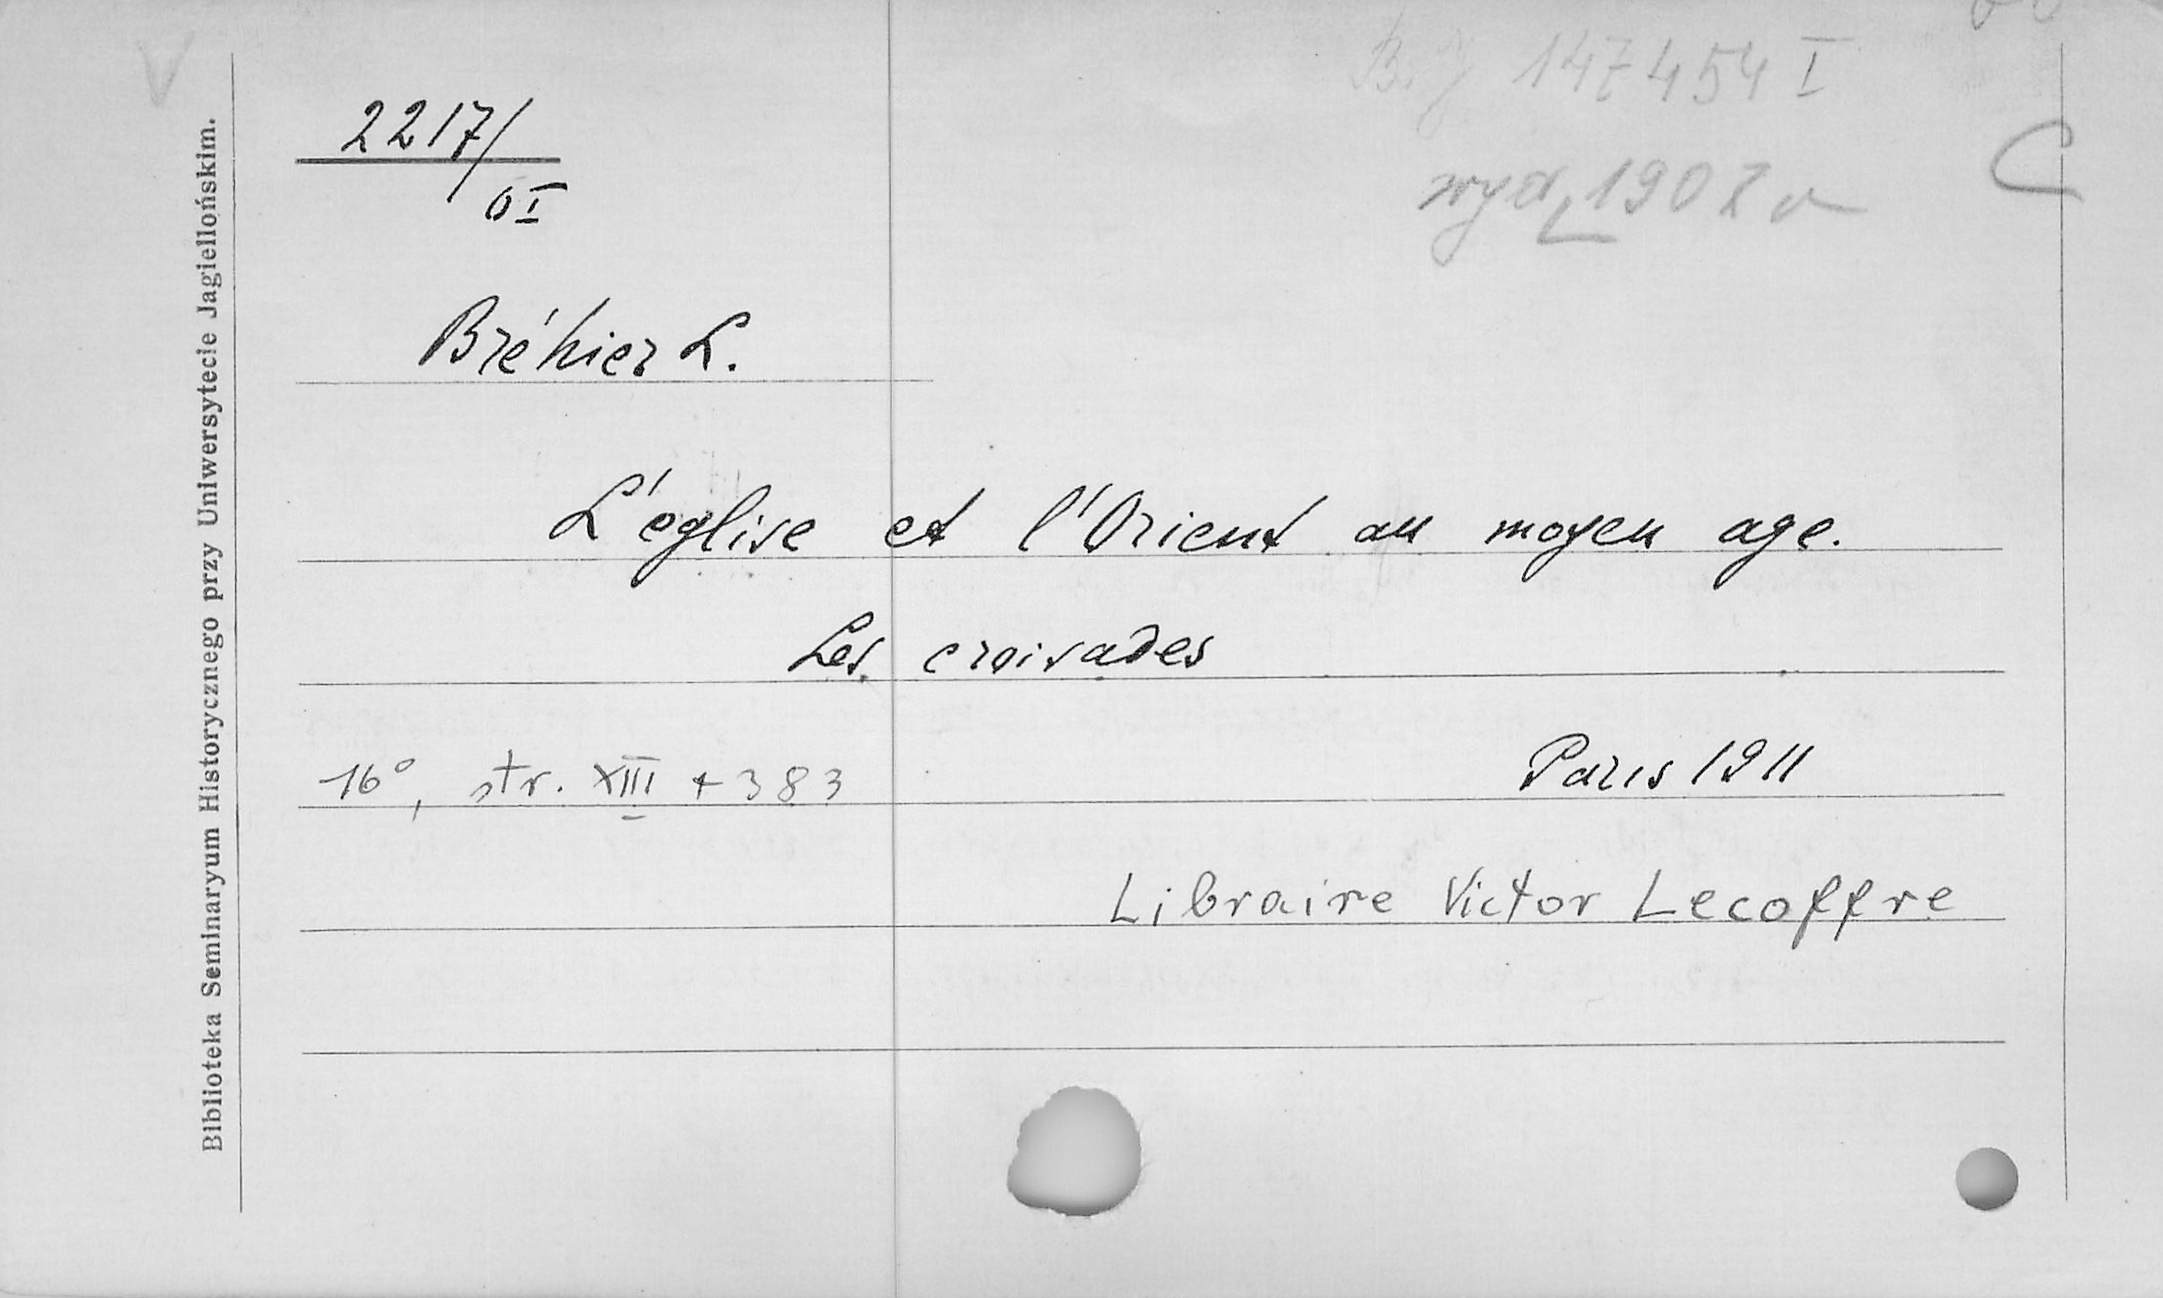 V
B.J 147454 I
C
2217/
OI
wyd. 1907 r
Bréhier L.
L'église et l'Orient au moyen age.
Les croisades
16°, str. XIII + 383
Paris 1911
Libraire Victor Lecoffre
Biblioteka Seminaryum Historycznego przy Uniwersytecie Jagiellońskim.